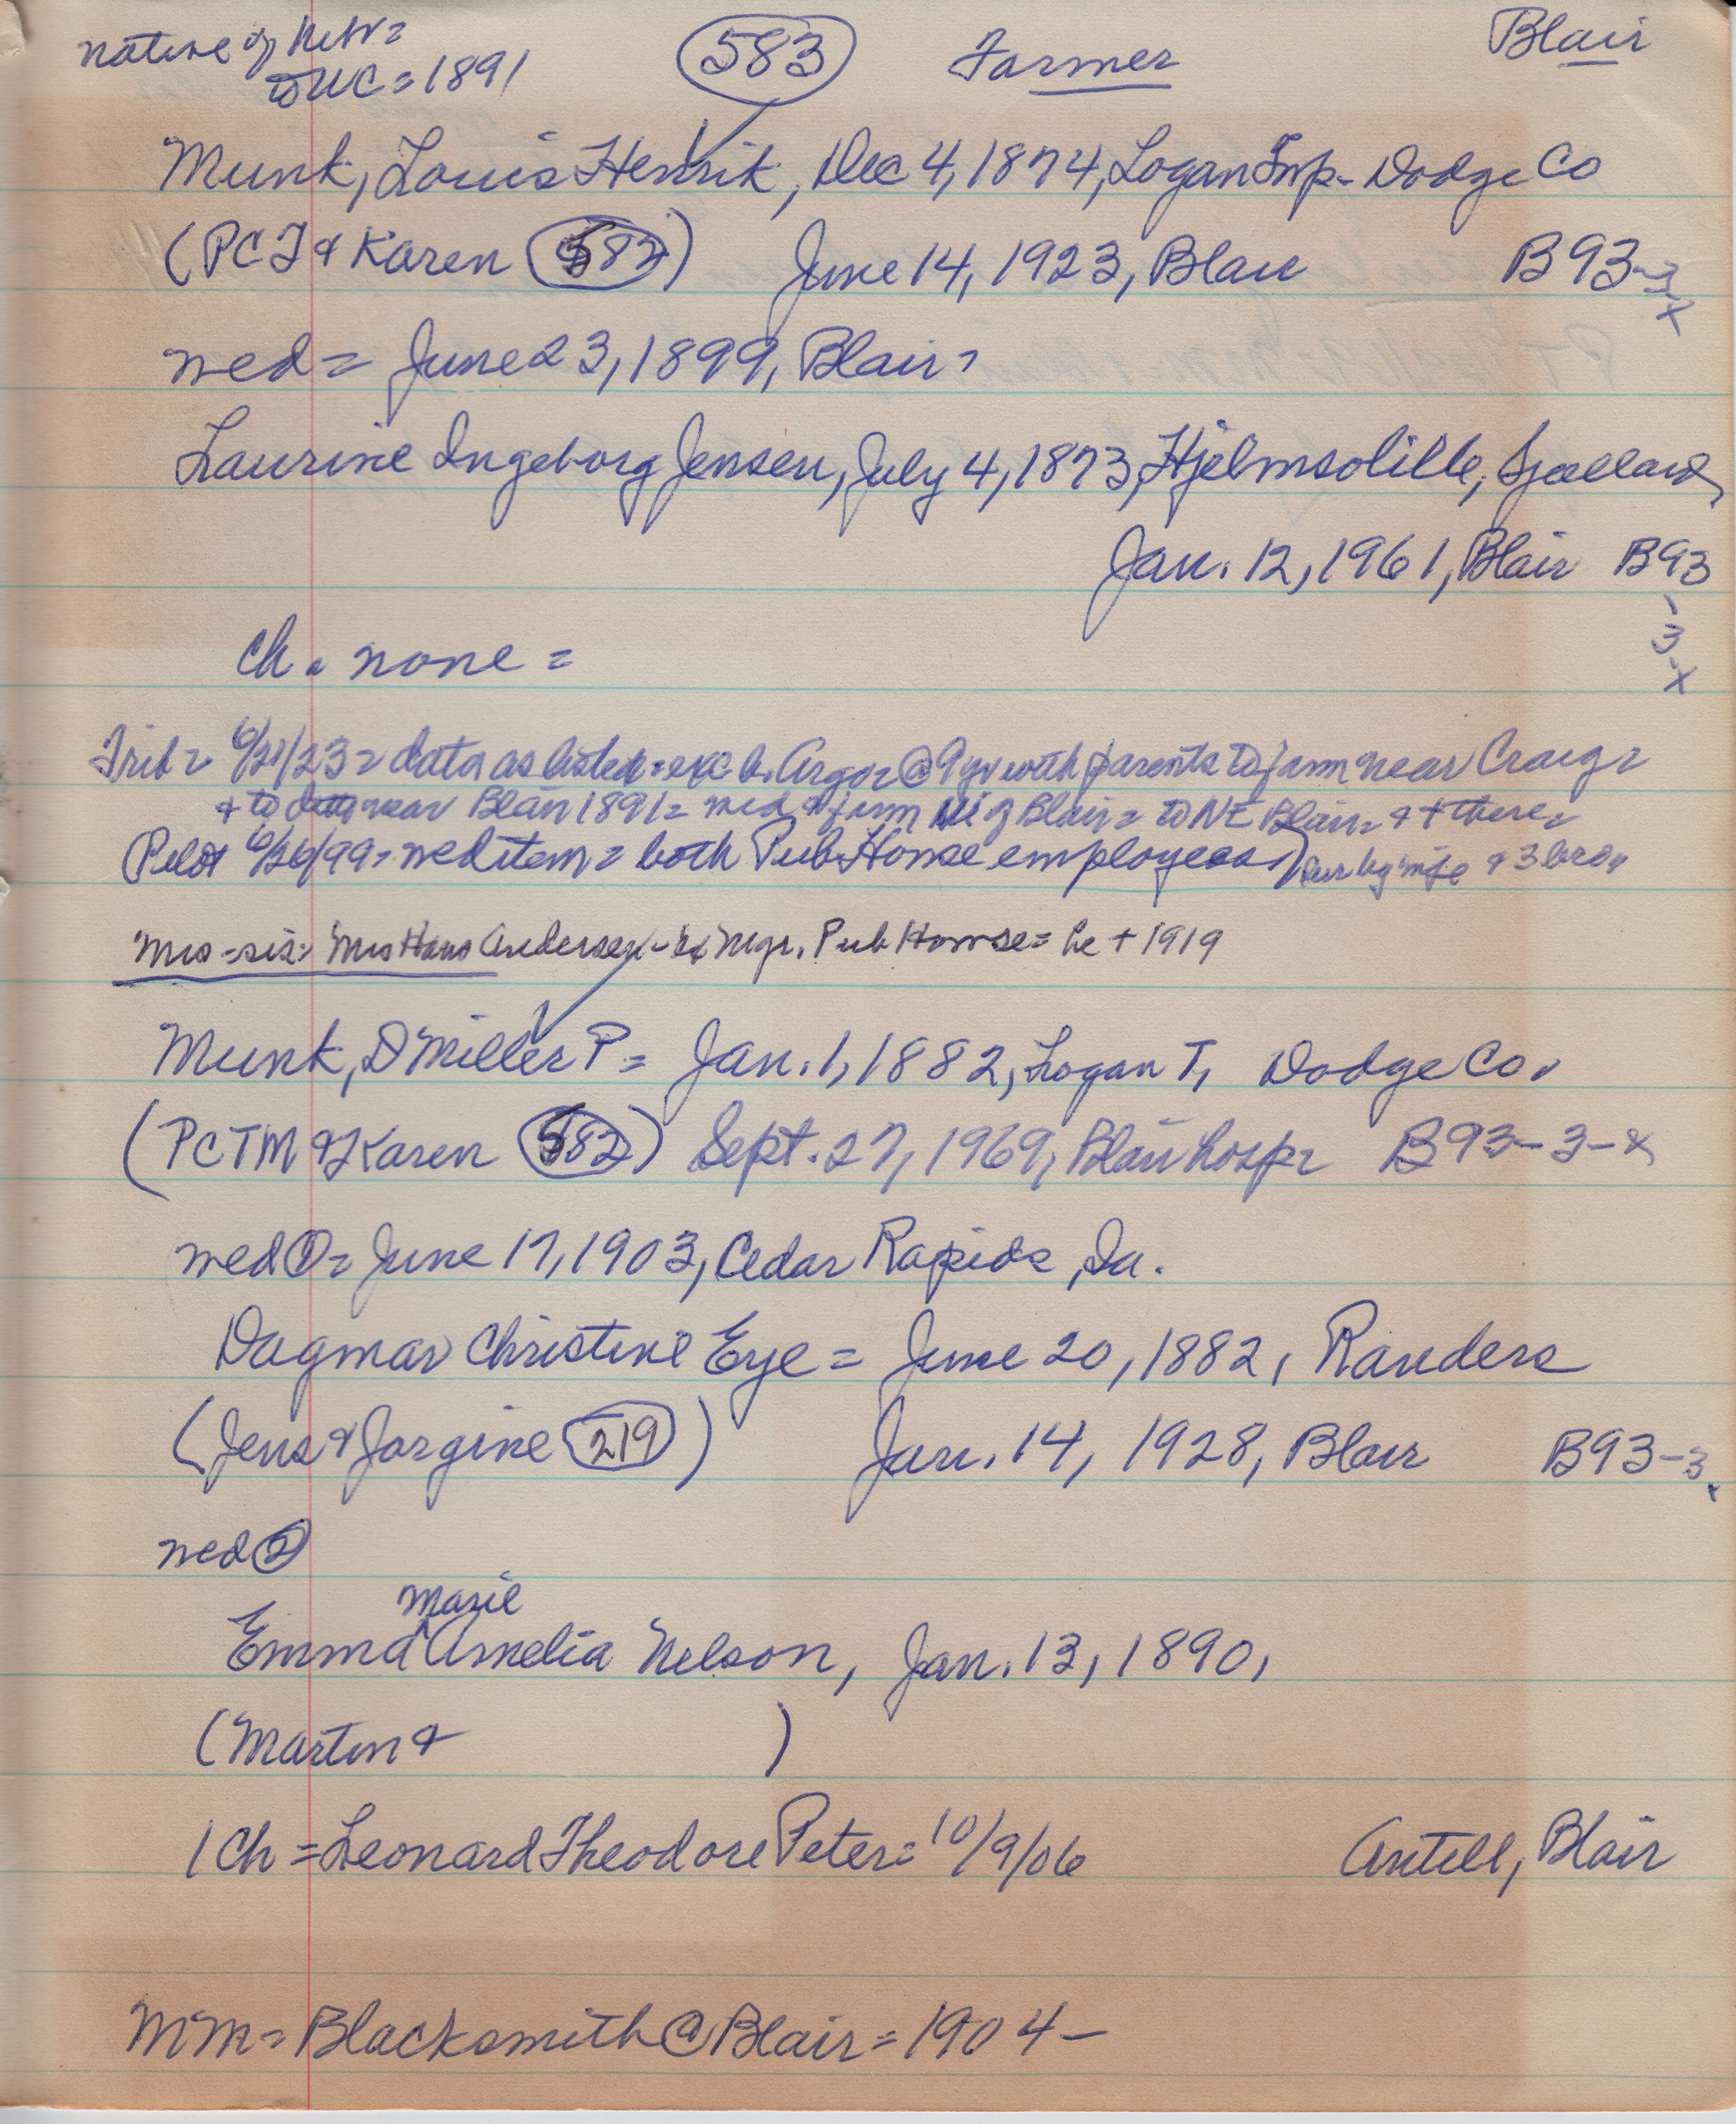 native of Neb= 583 Farmer Blair
to WC = 1891
Munk, Louis Henrik, Dec 4, 1874, Logan Twp - Dodge Co
(PCT & Karen 582) June 14, 1923, Blair B93-3-x
wed = June 23, 1899, Blair =
Laurine Ingeborg Jensen, July 4, 1873, Hjelmsolille, Sjaelland,
Jan. 12, 1961, Blair B93-3-x
Ch = none =
Trib = 6/21/23 = data as listed = exc b. Argo = @ 9 yr with parents to farm near Craig =
& to near Blair 1891 = wed & farm of Blair = to NE Blair = & + there =
Pilot 6/26/99 = wed item = both Pub House employees) sur by wife & 3 bros
Mrs = sis = Mrs Hans Andersen - Mgr. Pub House = he + 1919
Munk, D Miller P = Jan. 1, 1882, Logan T, Dodge Co.
(PCTM & Karen 582) Sept. 27, 1969, Blair hosp = B93-3-x
wed ① = June 17, 1903, Cedar Rapids, Ia.
Dagmar Christine Eye = June 20, 1882, Randers
(Jens & Jorgine 219) Jan. 14, 1928, Blair B93-3-x
wed ②
Marie
Emma ^ Amelia Nelson, Jan. 13, 1890,
(Martin & )
1 Ch = Leonard Theodore Peter = 10/9/06 Antell, Blair
MM = Blacksmith @ Blair = 1904 -